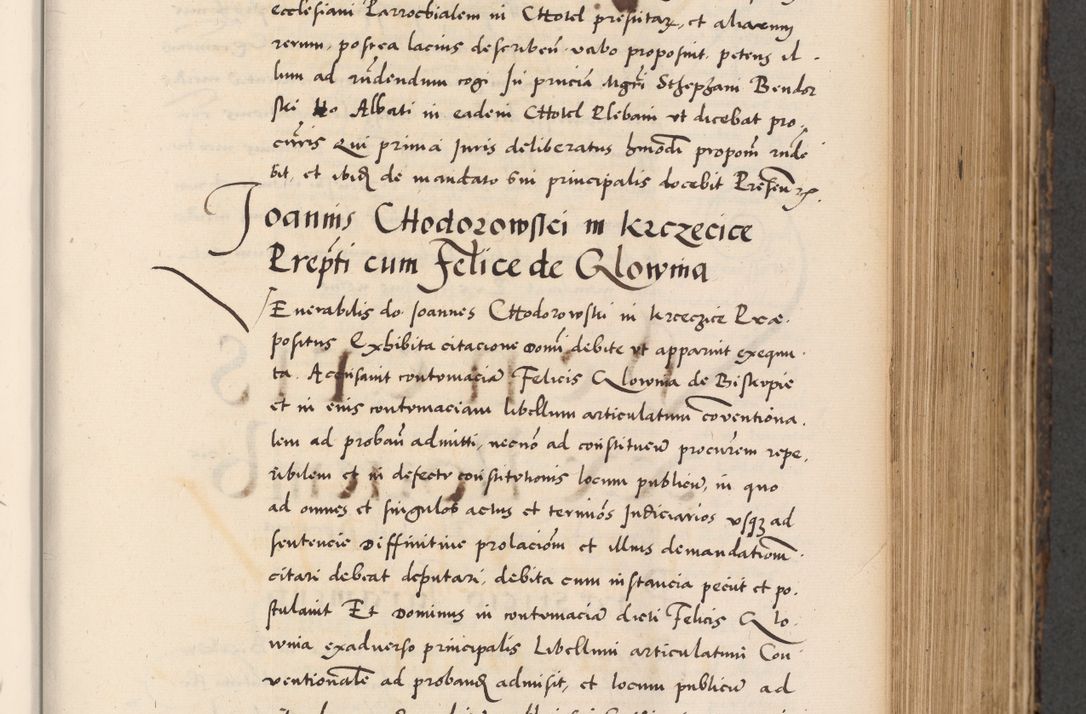 ecclesiam Parrochialem in Chotel presentatarum, et aliarum
rerum, postea lacius describen. verbo proposuit, petens il-
lum ad rñdendum cogi In pñcia Mgri Sthephani Bendor
ski Albati in eadem Chotel Plebani ut dicebat pro-
cūris Qui prima Juris deliberatus hmōdi propom̄ rñde
bit, et ibidē de mandato sui principalis docebit Presen
Joannis Chodorowski in Krczecice
Prep̄ti cum Felice de Glownia
Venerabilis do. Joannes Chodorowski in Krczeczice Præ-
positus Exhibita citacione Domi debite ut apparuit exequu-
ta. Accusauit contumaciā Felicis Glownia de Biskopie
et in eius contumaciam libellum articulatum cōventiona-
lem ad probañ admitti, necnō ad constituen procurem repe-
ribilem et in defectu constitutionis locum publicū, in quo
ad omnes et singulos actus et terminōs Judiciarios usq3 ad
sentencie Diffinitiue prolacionē et illius demandationem
citari debeat deputari, debita cum instancia peciit et po-
stulauit Et Dominus in contumaciā dicti Felicis Glo-
wnia exaduerso principalis Libellum articulatum Con-
uentionalē ad probandū admisit, et locum publicū ad